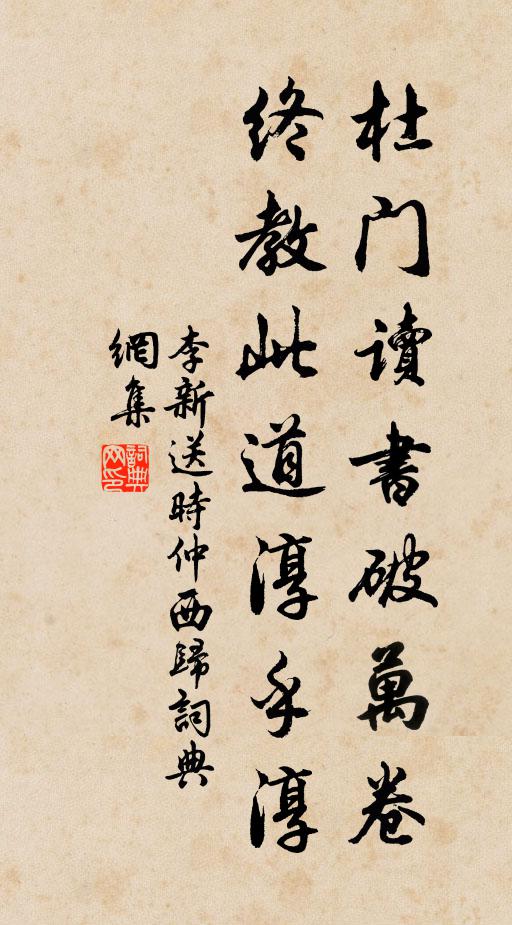 杜門讀書破萬卷
終教此道淳乎淳
李新送時仲西歸詞典
網集
詞典网印